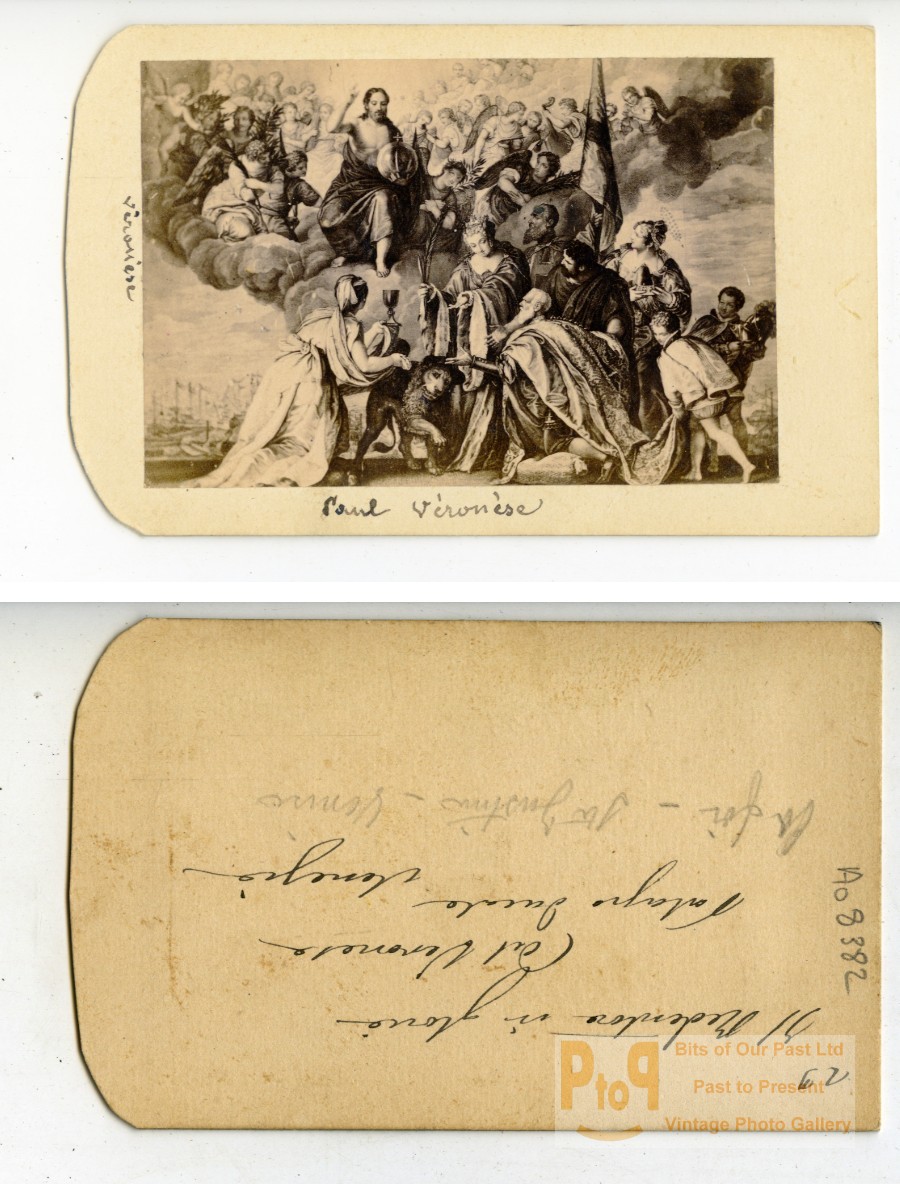 Véronèse
Paul Véronèse
Il Redentore in gloria
(del Veronese
Palazzo Ducale
Venezia
la foi - Ste Justine - Venise
No 8382
29
PtoP
Bits of Our Past Ltd
Past to Present
Vintage Photo Gallery